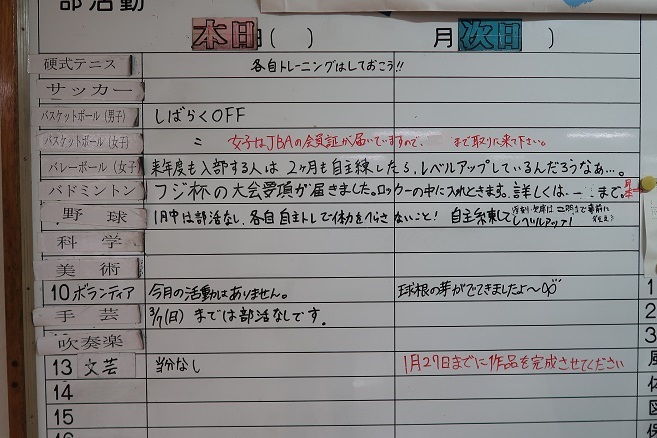 部活動
本日 ( ) 月 次日 ( )
硬式テニス 各自トレーニングはしておこう!!
サッカー
バスケットボール(男子) しばらくOFF
バスケットボール(女子) 〃 女子はJBAの会員証が届いていますので、 まで取りに来て下さい。
バレーボール(女子) 来年度も入部する人は2ヶ月も自主練したら、レベルアップしているんだろうなぁ…。
バドミントン フジ杯の大会要項が届きました。ロッカーの中に入れときます。詳しくは、 まで。
野球 1月中は部活なし、各自自主トレで体力をへらさないこと! 自主練してレベルアップ!
科学
美術
10 ボランティア 今月の活動はありません。 球根の芽がでてきましたよ〜
手芸 3/7(日)までは部活なしです。
吹奏楽
13 文芸 当分なし 1月27日までに作品を完成させてください
14
15
16
1
2
3